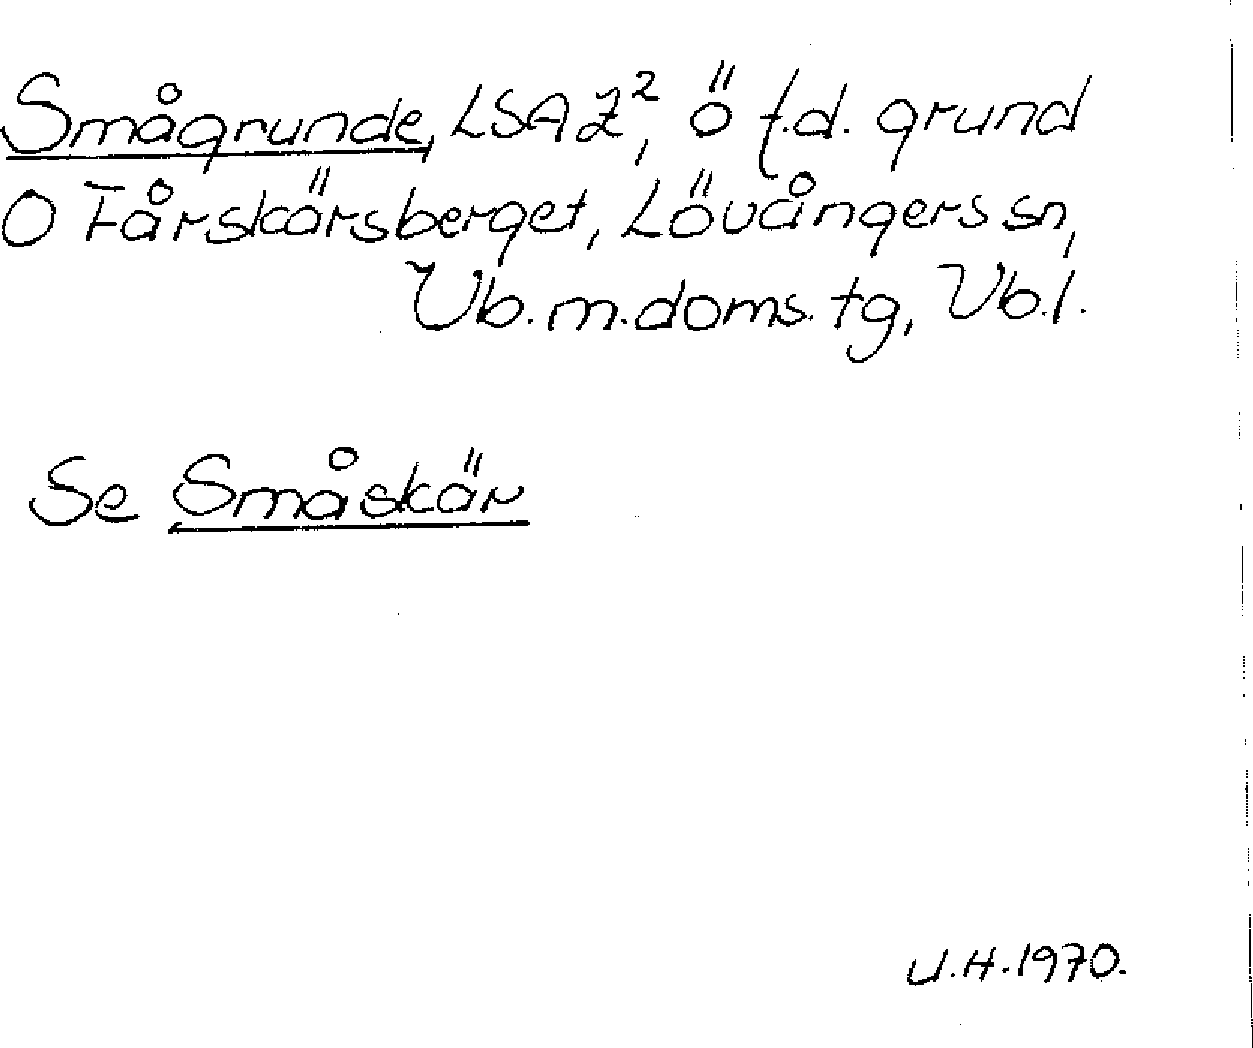 Smågrunde, LSA Z², ö f.d. grund
O Fårskärsberget, Lövångers sn,
Vb.m.doms.tg, Vb.l.
Se Småskär
U.H.1970.